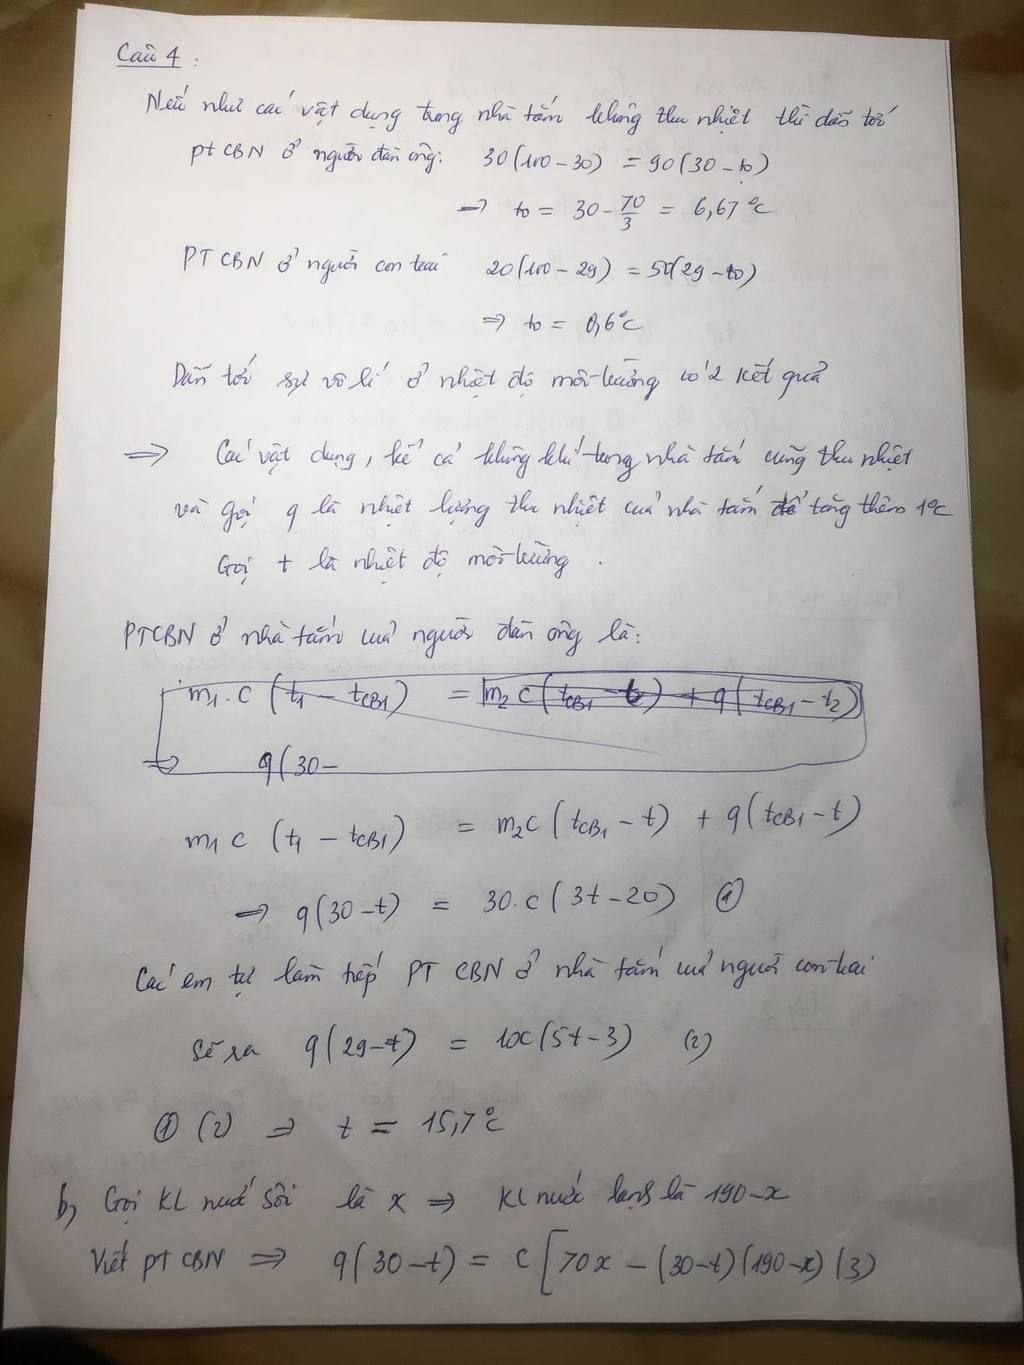 Câu 4 :
Nếu như các vật dụng trong nhà tắm không thu nhiệt thì dẫn tới
pt CBN ở người đàn ông: 30(100 - 30) = 90(30 - t0)
→ t0 = 30 - 70/3 = 6,67 °C
PT CBN ở người con trai 20(100 - 29) = 50(29 - t0)
⇒ t0 = 0,6°C
Dẫn tới sự vô lí ở nhiệt độ môi trường có 2 kết quả
⇒ Các vật dụng, kể cả không khí trong nhà tắm cũng thu nhiệt
và gọi q là nhiệt lượng thu nhiệt của nhà tắm để tăng thêm 1°C
Gọi t là nhiệt độ môi trường .
PTCBN ở nhà tắm của người đàn ông là:
m1. c (t1 - tCB1) = m2 c (tCB1 - t2) + q (tCB1 - t2)
⇒ q(30 -
m1 c (t1 - tCB1) = m2c (tCB1 - t) + q (tCB1 - t)
⇒ q(30 - t) = 30.c (3t - 20) (1)
Các em tự làm tiếp PT CBN ở nhà tắm của người con trai
sẽ ra q(29 - t) = 10c(5t - 3) (2)
(1) (2) ⇒ t = 15,7°C
b, Gọi KL nước sôi là x ⇒ KL nước lạnh là 190 - x
Viết pt CBN ⇒ q(30 - t) = c [70x - (30 - t)(190 - x) (3)